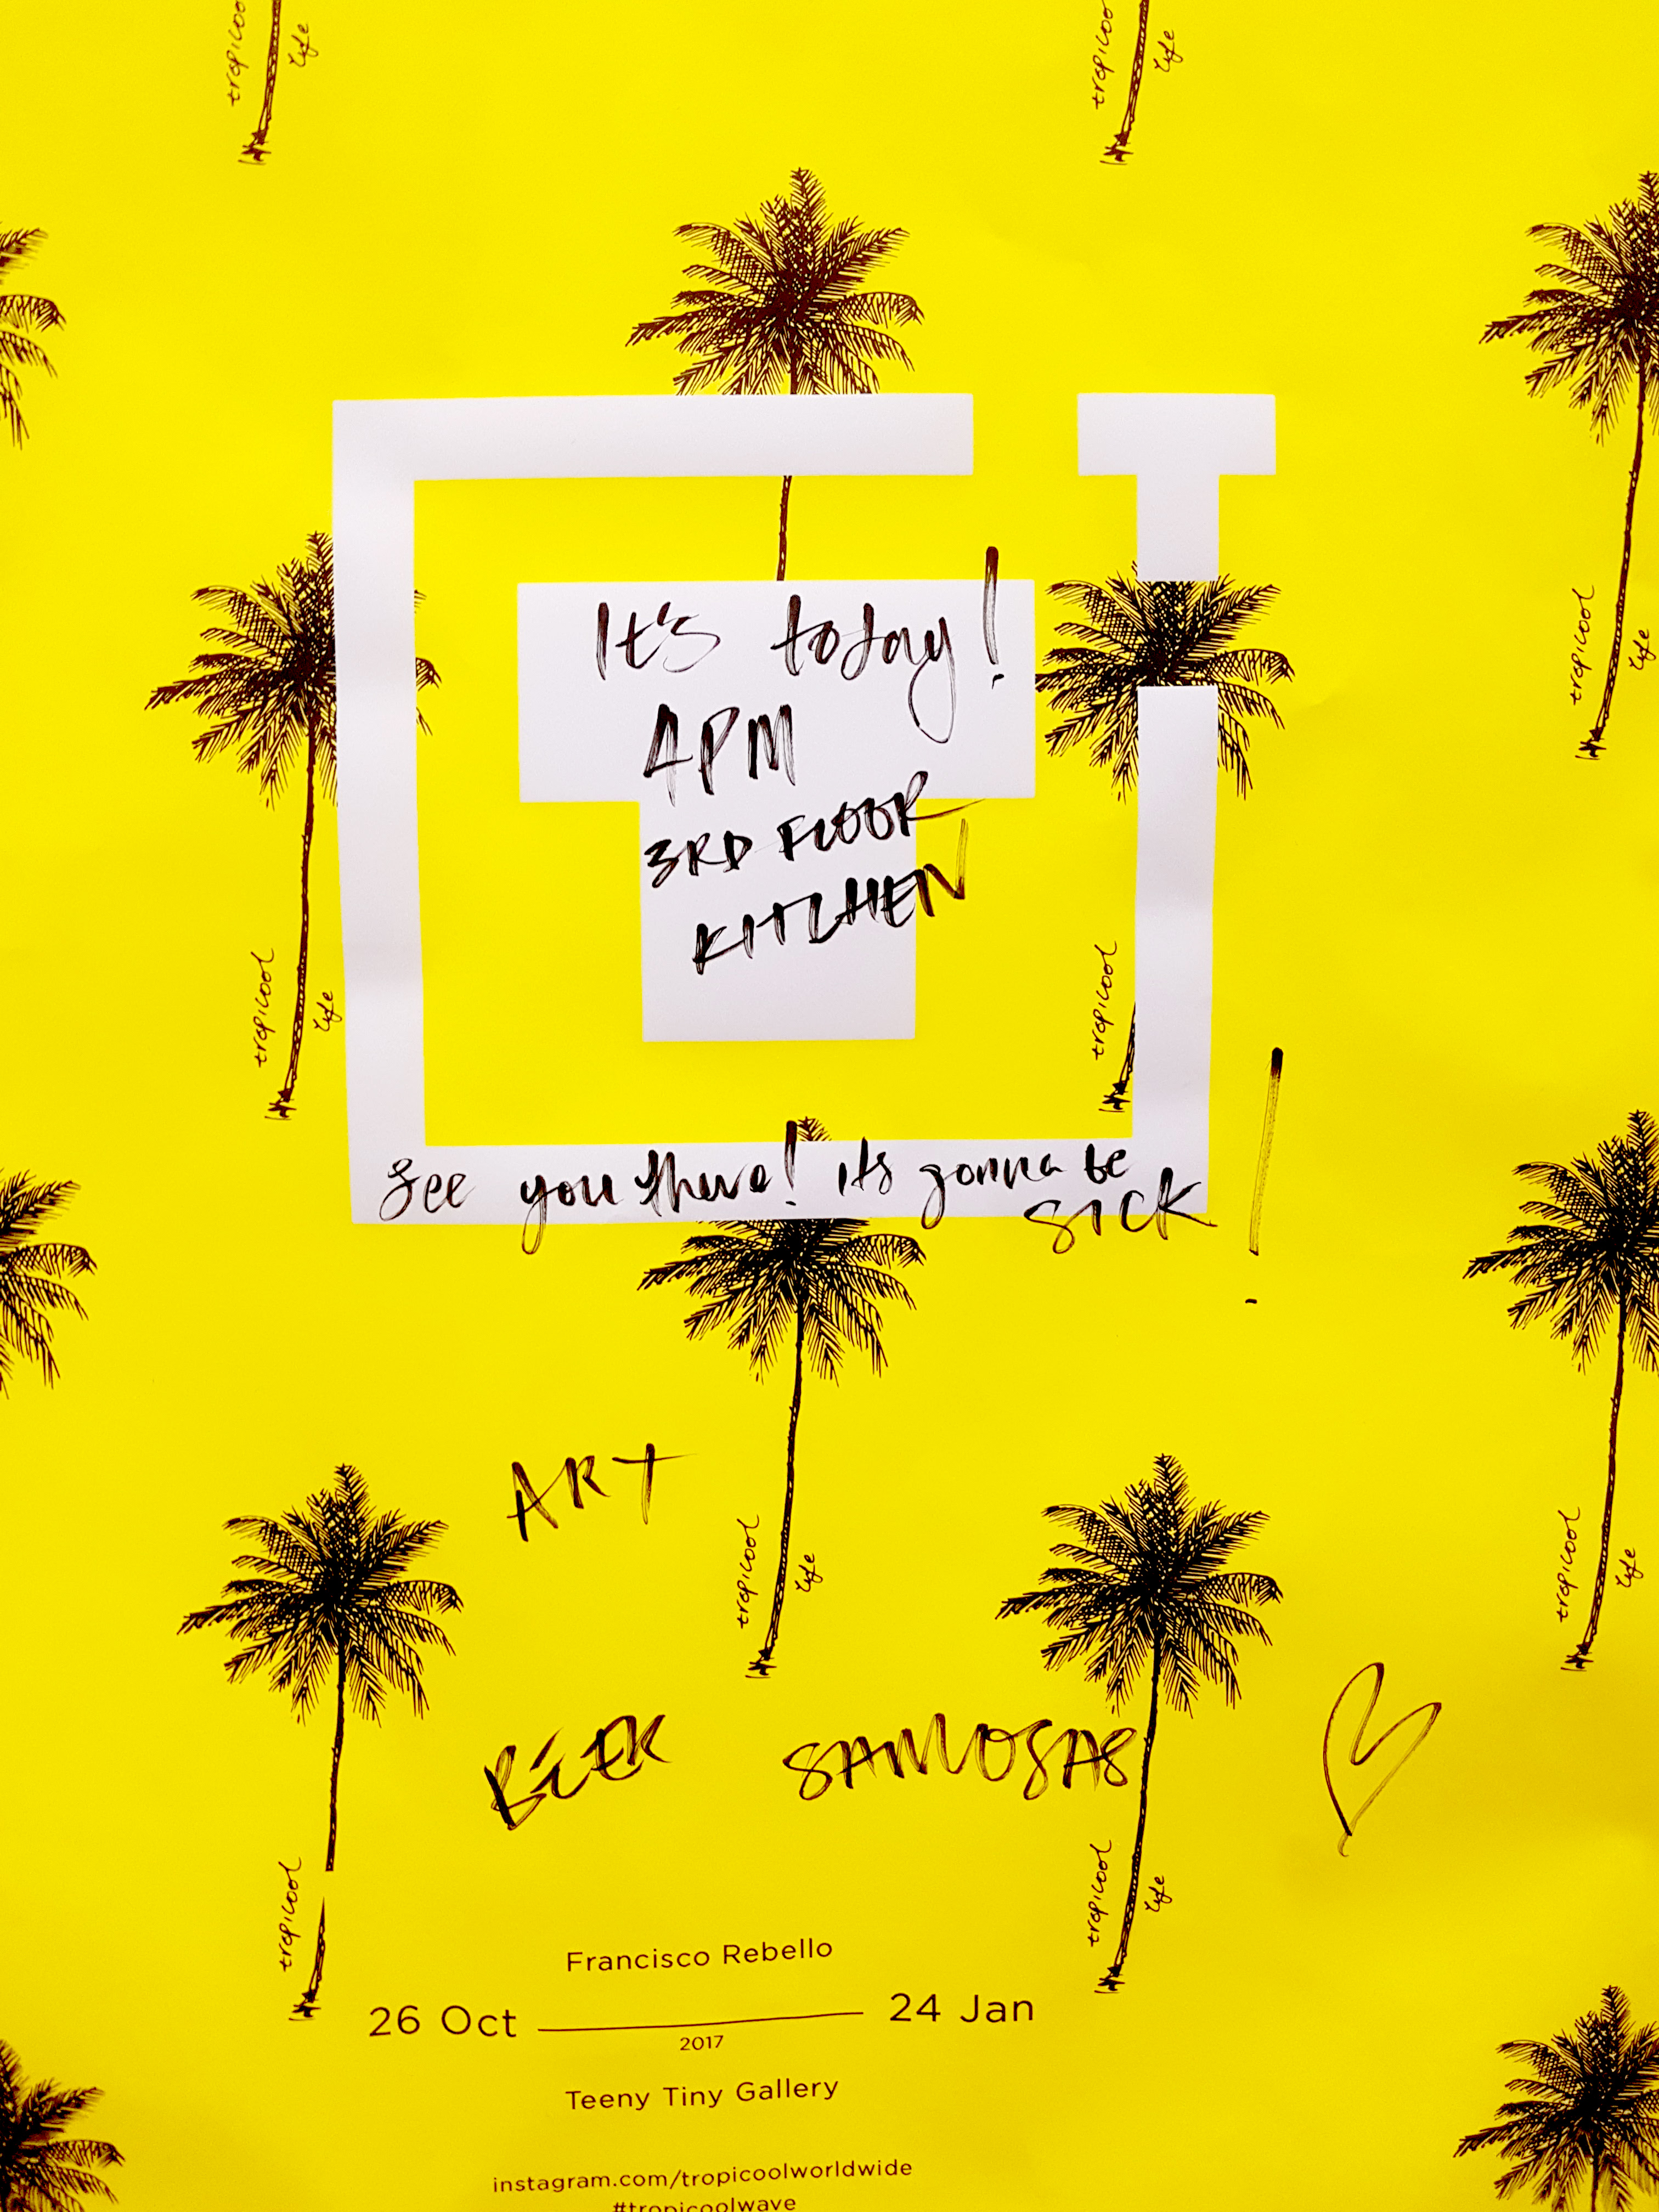 tropicool
life
tropicool
life
It's today!
4PM
3RD FLOOR
KITCHEN
tropicool
life
tropicool
life
tropicool
see you there! its gonna be
SICK!
ART
tropicool
life
tropicool
life
BEER SAMOSAS
tropicool
tropicool
life
Francisco Rebello
26 Oct 24 Jan
2017
Teeny Tiny Gallery
instagram.com/tropicoolworldwide
#tropicoolwave